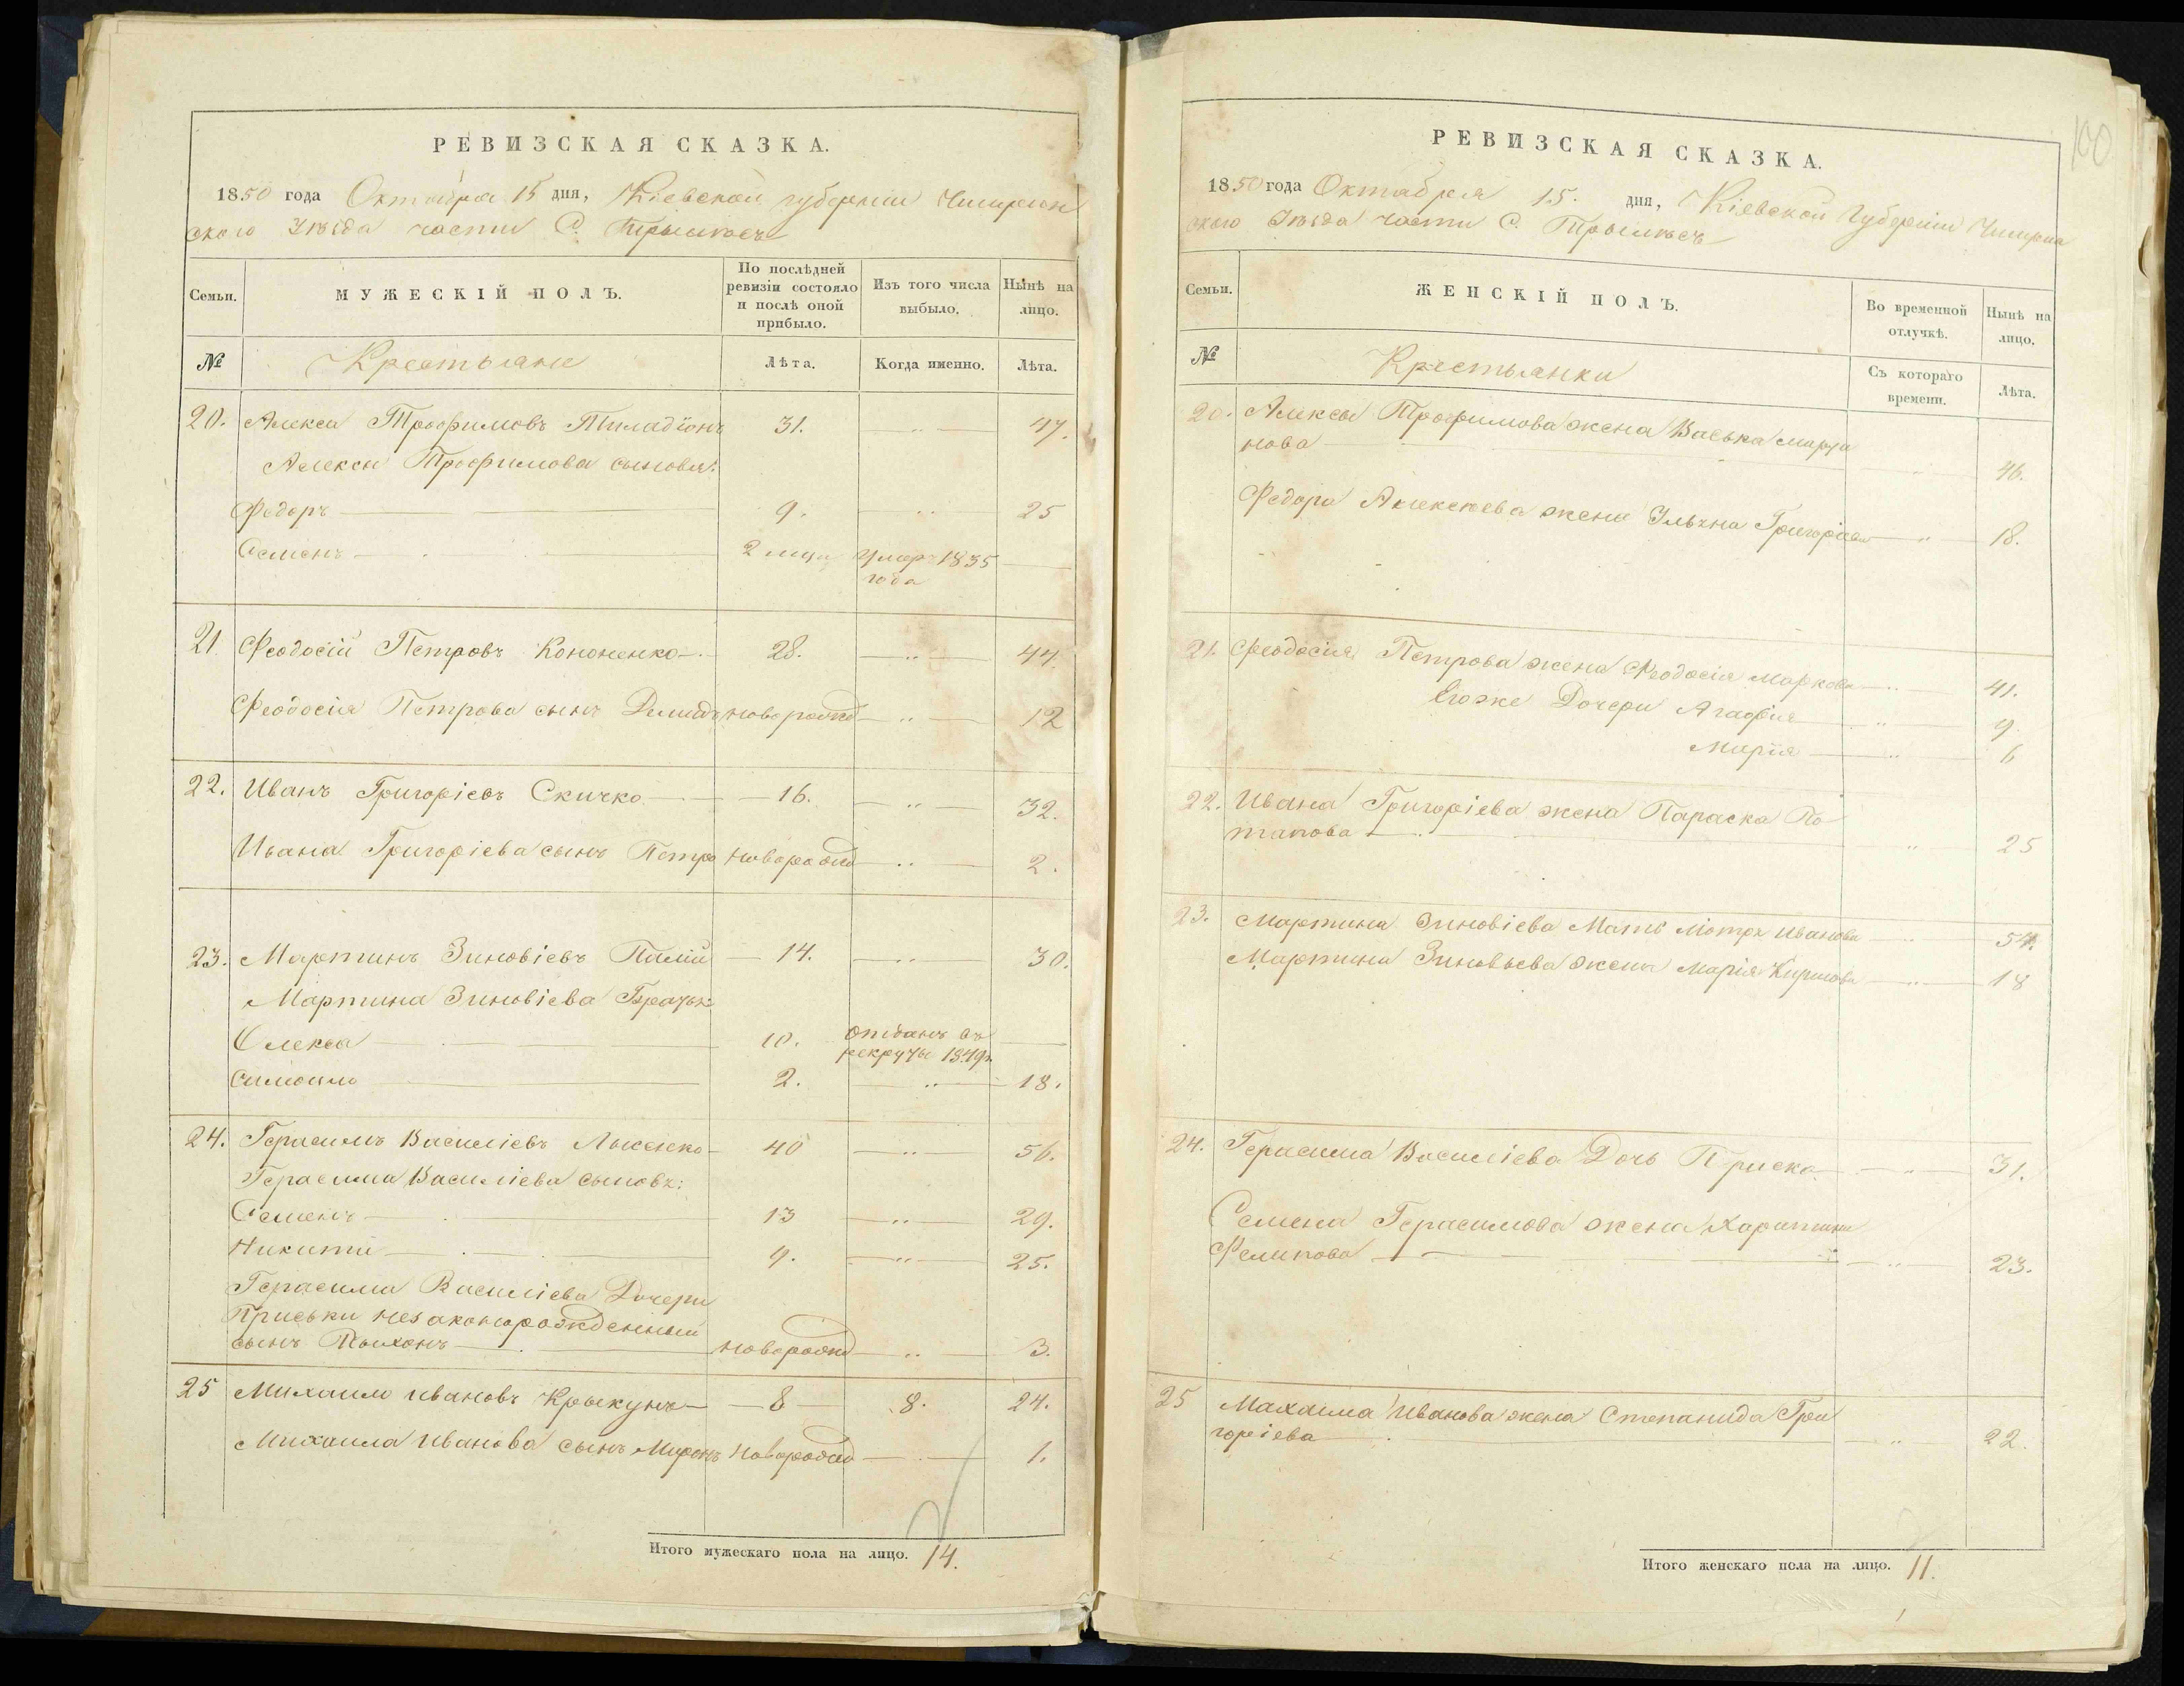 РЕВИЗСКАЯ СКАЗКА.
1850 года Октября 15 дня, Кіевской губерніи Чигирин
ского Уѣзда части С. Трылѣсъ
Семьи. МУЖЕСКІЙ ПОЛЪ. По послѣдней ревизіи состояло и послѣ оной прибыло. Изъ того числа выбыло. Нынѣ на лицо.
№ Крестьяне Лѣта. Когда именно. Лѣта.
20. Алекса Трофимовъ 31. 47.
Алексы Трофимова сыновья:
Федоръ 9. 25
Семенъ 2 умеръ 1835
года
21. Феодосій Петровъ Кононенко 28. 44.
Феодосія Петрова сынъ Демидъ новорожд 12
22. Иванъ Григоріевъ Скичко 16. 32.
Ивана Григоріева сынъ Петро новорожд 2.
23. Мартинъ Зиновіевъ Палій 14. 30.
Мартина Зиновіева Братья
Олекса 10. отданъ въ
рекруты 1849г.
Самоило 2. 18.
24. Герасимъ Василіевъ Лысенко 40 56.
Герасима Василіева сыновья:
Семенъ 13 29.
Никита 9. 25.
Герасима Василіева Дочери
Приськи незаконорожденный
сынъ Тыхонъ новорожд 3.
25 Михаило Ивановъ Крыкунъ 8 8. 24.
Михаила Иванова сынъ Миронъ новорожд 1.
Итого мужескаго пола на лицо. 14.
100
РЕВИЗСКАЯ СКАЗКА.
1850 года Октября 15. дня, Кіевской Губерніи Чигирин
ского Уѣзда части С. Трылѣсъ
Семьи. ЖЕНСКІЙ ПОЛЪ. Во временной отлучкѣ. Нынѣ на лицо.
№ Крестьянки Съ котораго времени. Лѣта.
20. Алексы Трофимова жена Васька Марты
нова 46.
Федора Алексѣева жена Ульяна Григоріева 18.
21. Феодосія Петрова жена Феодосія Маркова 41.
Егоже Дочери Агафія 9.
Марія 6
22. Ивана Григоріева жена Параска По
тапова 25
23. Мартина Зиновіева Мать Мотря Иванова 54.
Мартина Зиновьева жена Марія Кирилова 18
24. Герасима Василіева Дочь Приска 31.
Семена Герасимова жена Харитина
Филипова 23.
25 Михаила Иванова жена Степанида Гри
горіева 22.
Итого женскаго пола на лицо. 11.